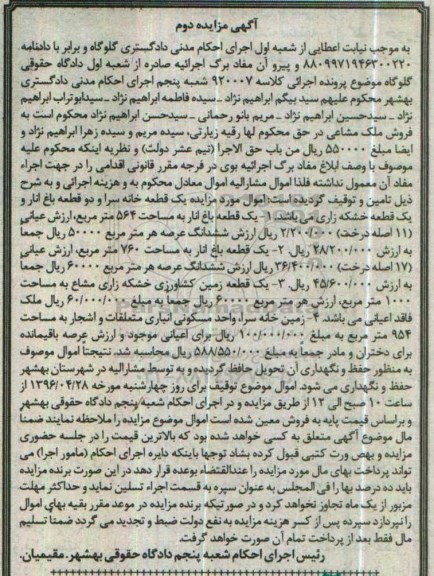 آگهی مزایده دوم
به موجب نیابت اعطایی از شعبه اول اجرای احکام مدنی دادگستری گلوگاه و برابر با دادنامه
۸۸۰۹۹۷۱۹۴۶۳۰۰۲۲۰ و پیرو آن مفاد برگ اجرائیه صادره از شعبه اول دادگاه حقوقی
گلوگاه موضوع پرونده اجرائی کلاسه ۹۲۰۰۰۷ شعبه پنجم اجرای احکام مدنی دادگستری
بهشهر محکوم علیهم سید بیگم ابراهیم نژاد ـ سیده فاطمه ابراهیم نژاد ـ سیدابوتراب ابراهیم
نژاد ـ سیدحسین ابراهیم نژاد ـ مریم بانو رحمانی ـ سیدحسن ابراهیم نژاد محکوم است به
فروش ملک مشاعی در حق محکوم لها رقیه زیارتی، سیده مریم و سیده زهرا ابراهیم نژاد و
ایضا مبلغ ۵۵۰۰۰۰ ریال من باب حق الاجرا (نیم عشر دولت) و نظریه اینکه محکوم علیه
موصوف با وصف ابلاغ مفاد برگ اجرائیه بوی در فرجه مقرر قانونی اقدامی را در جهت اجراء
مفاد آن معمول نداشته فلذا اموال مشارالیه اموال معادل محکوم به و هزینه اجرائی و به شرح
ذیل تامین و توقیف گردیده است: اموال مورد مزایده یک قطعه خانه سرا و دو قطعه باغ انار و
یک قطعه خشکه زاری می باشد. ۱- یک قطعه باغ انار به مساحت ۵۶۴ متر مربع، ارزش عیانی
(۱۱ اصله درخت) ۲/۲۰۰/۰۰۰ ریال ارزش ششدانگ عرصه هر متر مربع ۵۰۰۰۰ ریال جمعا
به ارزش ۲۸/۲۰۰/۰۰۰ ریال. ۲- یک قطعه باغ انار به مساحت ۷۶۰ متر مربع، ارزش عیانی
(۱۷ اصله درخت) ۳۶/۴۰۰/۰۰۰ ریال ارزش ششدانگ عرصه هر متر مربع ۶۰۰۰۰ ریال جمعا
به ارزش ۴۵/۶۰۰/۰۰۰ ریال. ۳- یک قطعه زمین کشاورزی خشکه زاری مشاع به مساحت
۱۰۰۰ متر مربع، ارزش هر متر مربع ۶۰۰۰۰ ریال جمعا به مبلغ ۶۰/۰۰۰/۰۰۰ ریال ملک
فاقد اعیانی می باشد. ۴- زمین خانه سرا، واحد مسکونی انباری متعلقات و اشجار به مساحت
۹۵۴ متر مربع به مبلغ ۱۰۰/۰۰۰/۰۰۰ ریال برای اعیانی موجود و ارزش عرصه باقیمانده
برای دختران و مادر جمعا به مبلغ ۵۸۸/۵۵۰/۰۰۰ ریال محاسبه شد. نتیجتا اموال موصوف
به منظور حفظ و نگهداری آن تحویل حافظ گردیده و به توسط مشارالیه در شهرستان بهشهر
حفظ و نگهداری می شود. اموال موضوع توقیف برای روز چهارشنبه مورخه ۱۳۹۶/۰۴/۲۸ از
ساعت ۱۰ صبح الی ۱۲ از طریق مزایده و در اجرای احکام شعبه پنجم دادگاه حقوقی بهشهر
و براساس قیمت پایه به فروش معین شده است اموال موضوع مزایده را ملاحظه نمایند ضمنا
مال موضوع آگهی متعلق به کسی خواهد شده بود که بالاترین قیمت را در جلسه حضوری
مزایده و بهص ورت کتبی قبول کرده بشاد توجها باینکه دایره اجرای احکام (مامور اجرا) می
تواند پرداخت بهای مال مورد مزایده را عندالاقتضاء بوعده قرار دهد در این صورت برنده مزایده
باید ده درصد بها را فی المجلس به عنوان سپره به قسمت اجراء تسلین نماید و حداکثر مهلت
مزبور از یک ماه تجاوز نخواهد کرد و در صورتیکه برنده مزایده در موعد مقرر بقیه بهای اموال
را نپردازد سپرده پس از کسر هزینه مزایده به نفع دولت ضبط و تجدید می گردد ضمنا تسلیم
مال فقط بعد از پرداخت تمام آن صورت خواهد گرفت.
رئیس اجرای احکام شعبه پنجم دادگاه حقوقی بهشهر. مقیمیان.